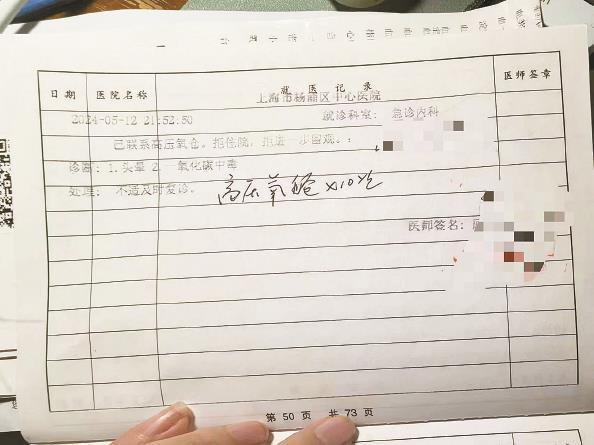 日期 医院名称 就医记录 医师签章
上海市杨浦区中心医院
2024-05-12 21:52:50 就诊科室: 急诊内科
已联系高压氧仓。拒住院，拒进一步留观。
诊断: 1. 头晕 2. 一氧化碳中毒
处理: 不适及时复诊。 高压氧舱 x10次
医师签名:
第 50 页 共 73 页